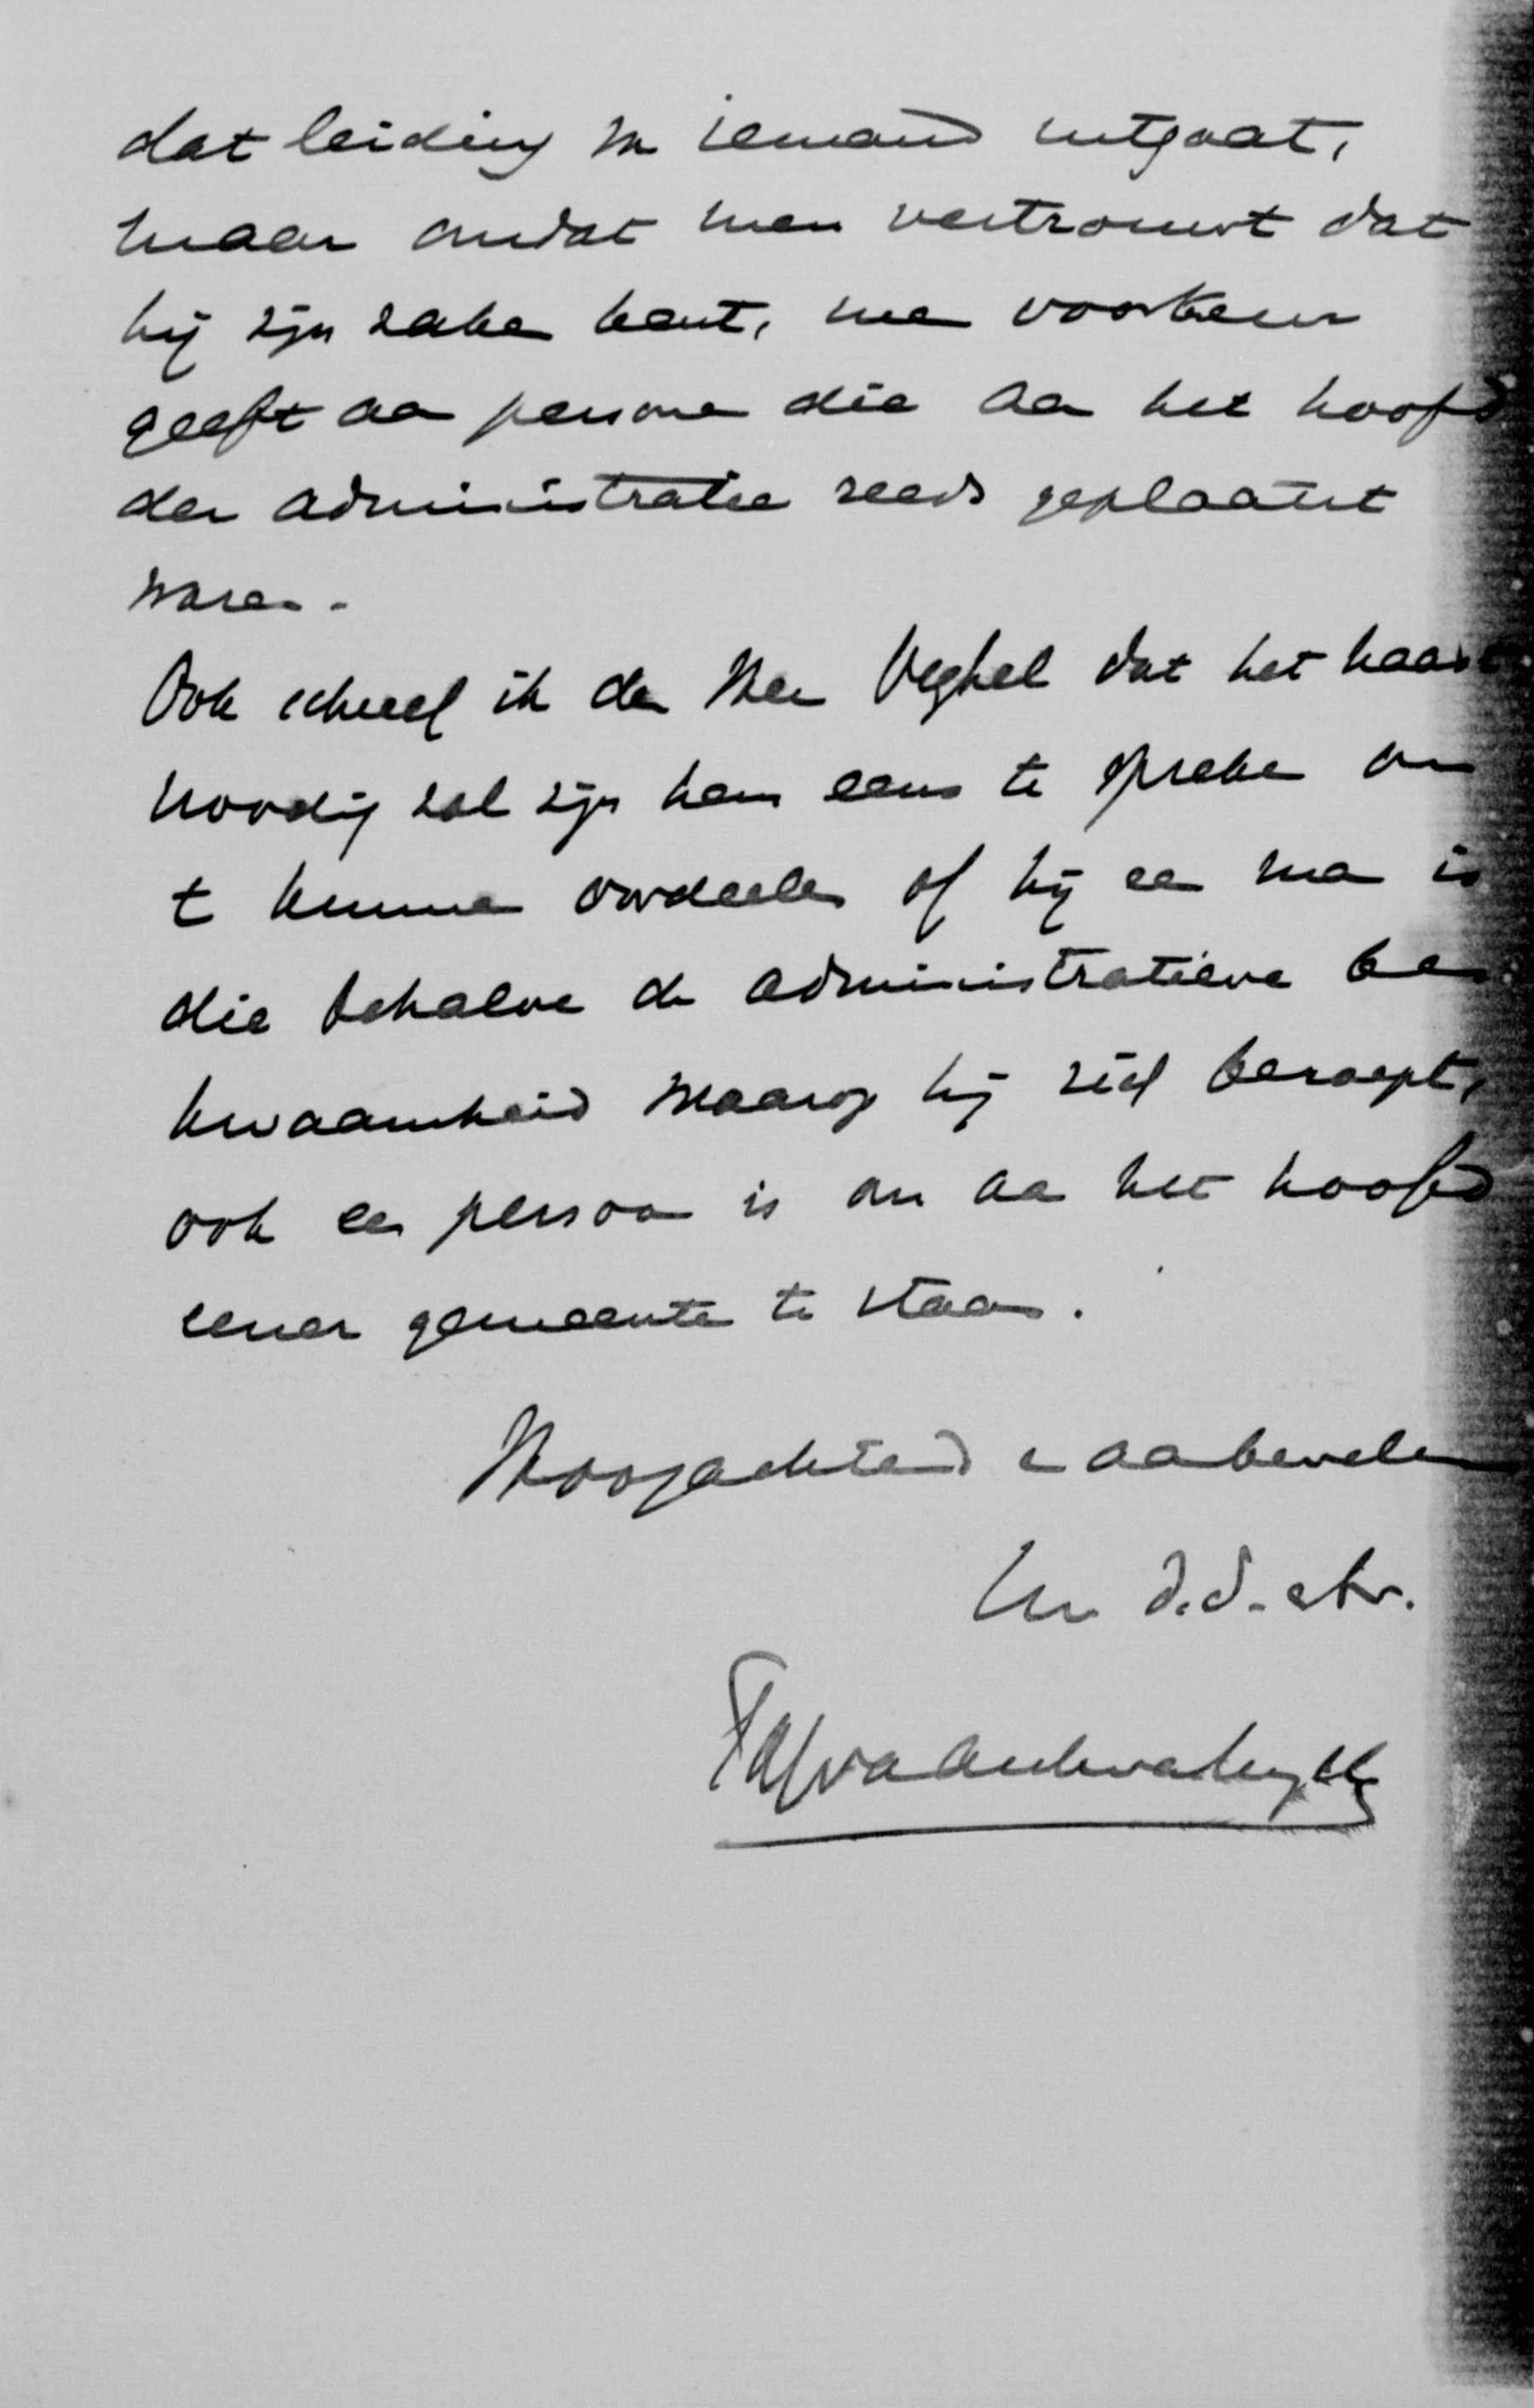 dat leiding van iemand uitgaat,
maar omdat men vertrouwt dat
hij zijn zaken kent, men voorkeur
geeft aan personen die aan het hoofd
der administratie reeds geplaatst
waren.
Ook schreef ik den Heer Veghel dat het haast
noodig zal zijn hem eens te spreken om
te kunnen oordeelen of hij een man is
die behalve de administratieve be-
kwaamheid waarop hij zich beroept,
ook een persoon is om aan het hoofd
eener gemeente te staan.
Hoogachtend en aanbevelend
Uw d.d. etr.